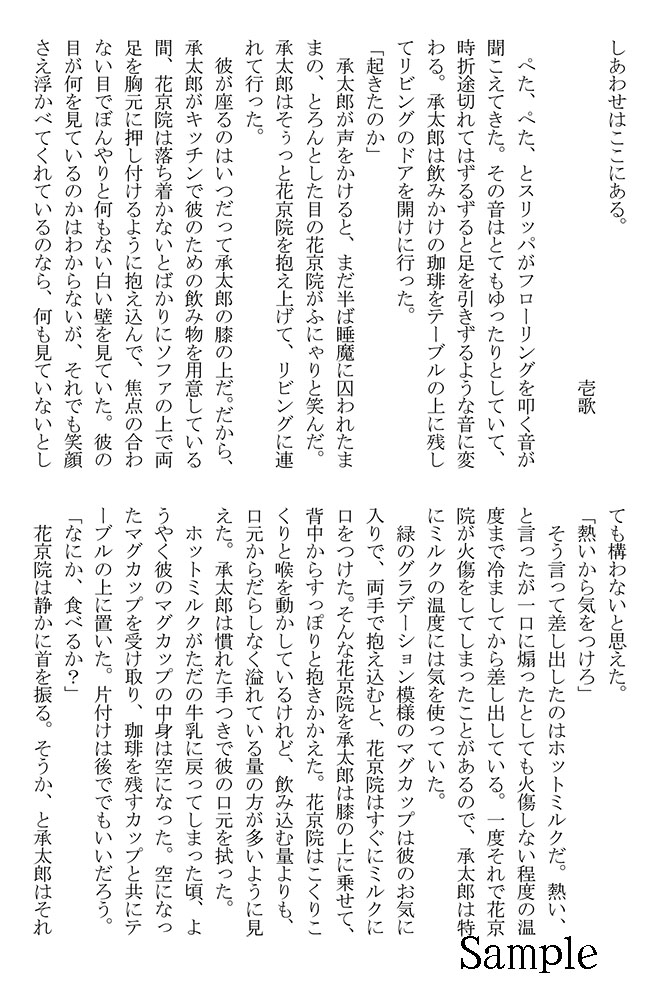 しあわせはここにある。
壱歌
　ぺた、ぺた、とスリッパがフローリングを叩く音が
聞こえてきた。その音はとてもゆったりとしていて、
時折途切れてはずるずると足を引きずるような音に変
わる。承太郎は飲みかけの珈琲をテーブルの上に残し
てリビングのドアを開けに行った。
「起きたのか」
　承太郎が声をかけると、まだ半ば睡魔に囚われたま
まの、とろんとした目の花京院がふにゃりと笑んだ。
承太郎はそぅっと花京院を抱え上げて、リビングに連
れて行った。
　彼が座るのはいつだって承太郎の膝の上だ。だから、
承太郎がキッチンで彼のための飲み物を用意している
間、花京院は落ち着かないとばかりにソファの上で両
足を胸元に押し付けるように抱え込んで、焦点の合わ
ない目でぼんやりと何もない白い壁を見ていた。彼の
目が何を見ているのかはわからないが、それでも笑顔
さえ浮かべてくれているのなら、何も見ていないとし
ても構わないと思えた。
「熱いから気をつけろ」
　そう言って差し出したのはホットミルクだ。熱い、
と言ったが一口に煽ったとしても火傷しない程度の温
度まで冷ましてから差し出している。一度それで花京
院が火傷をしてしまったことがあるので、承太郎は特
にミルクの温度には気を使っていた。
　緑のグラデーション模様のマグカップは彼のお気に
入りで、両手で抱え込むと、花京院はすぐにミルクに
口をつけた。そんな花京院を承太郎は膝の上に乗せて、
背中からすっぽりと抱きかかえた。花京院はこくりこ
くりと喉を動かしているけれど、飲み込む量よりも、
口元からだらしなく溢れている量の方が多いように見
えた。承太郎は慣れた手つきで彼の口元を拭った。
　ホットミルクがただの牛乳に戻ってしまった頃、よ
うやく彼のマグカップの中身は空になった。空になっ
たマグカップを受け取り、珈琲を残すカップと共にテ
ーブルの上に置いた。片付けは後ででもいいだろう。
「なにか、食べるか？」
　花京院は静かに首を振る。そうか、と承太郎はそれ
Sample